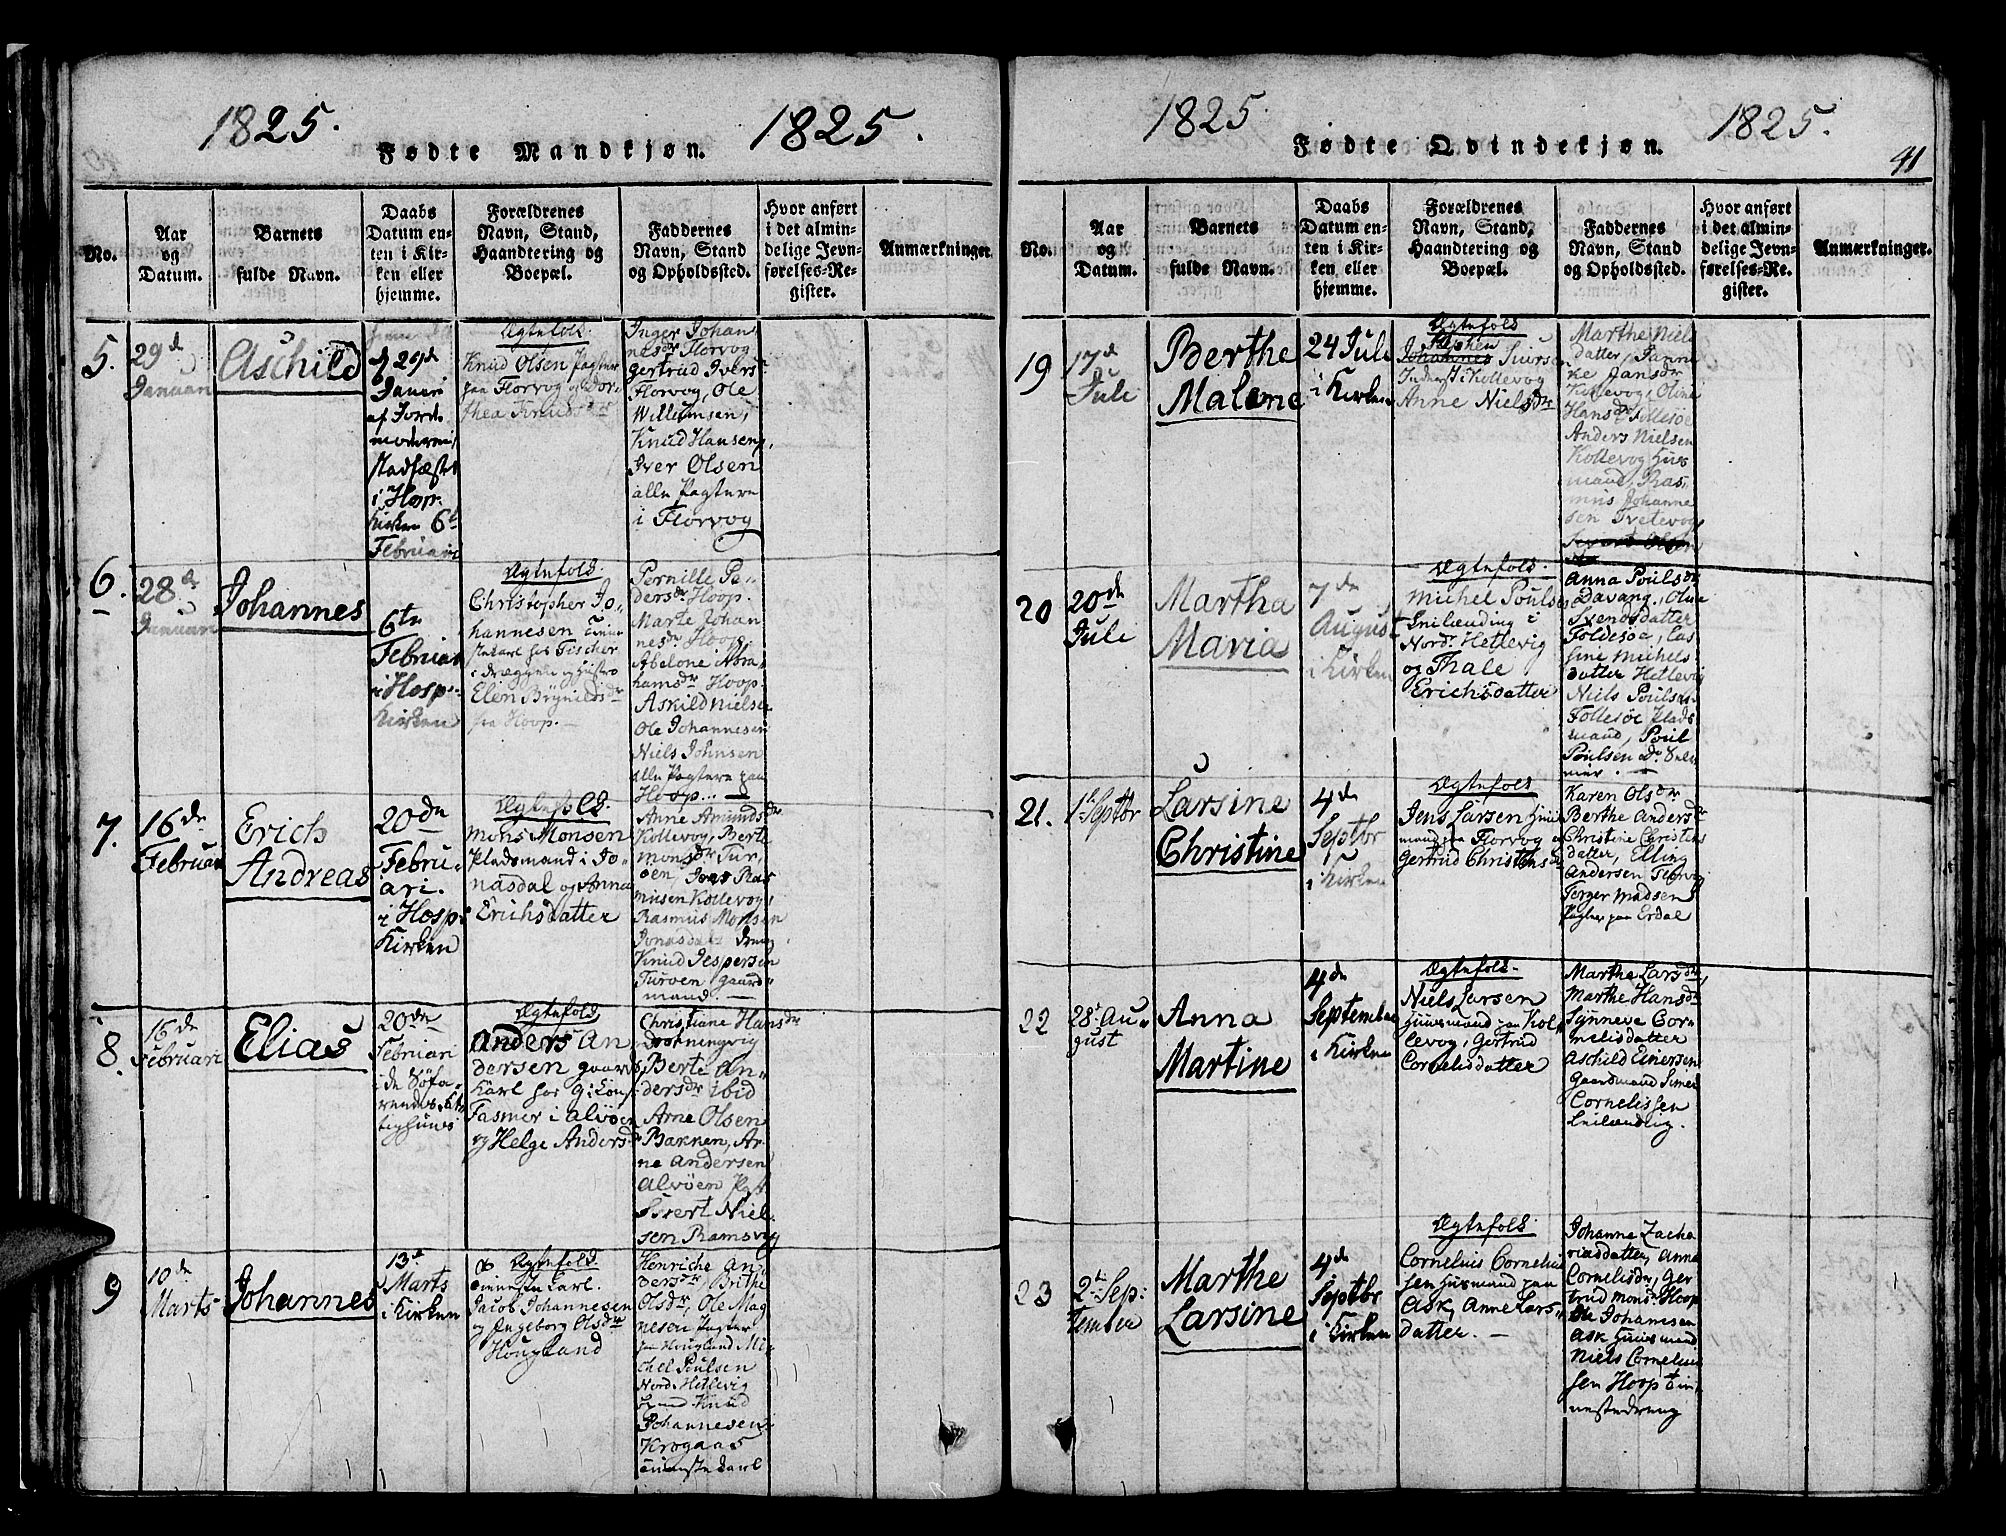 1825.
Fødte Mandkjøn.
1825.
No.
Aar
og
Datum.
Barnets
fulde Navn.
Daabs
Datum en-
ten i Kir-
ken eller
hjemme.
Forældrenes
Navn, Stand,
Haandtering og
Boepæl.
Faddernes
Navn, Stand
og Opholdssted.
Hvor anført
i det almin-
delige Jevn-
førelses-Re-
gister.
Anmærkninger.
5.
29de
Januari
Aschild
d 29d
Januari
af Jord-
moderen,
stadfæstet
i Hosp.
Kirken 6te
Februari
Ægtefolk.
Knud Olsen Pagter
paa Florvog og Dor-
thea Knudsdr
Inger Johan-
nesdr Florvog
Gertrud Ivers-
Florvog, Ole
Willumsen,
Knud Hansen,
Iver Olsen
alle Pagtere
i Florvog
6.
28de
Januari
Johannes
6te
Februari
i Hosp.
Kirken
Ægtefolk.
Christopher Jo-
hannesen
Fischer
i og Hustro
Elen Brynildsdr
paa Hoop.
Pernille Pe-
dersdr Hoop.
Marte Johan-
nesdr Hoop,
Abelone Abra-
hamsdr Hoop.
Askild Nielsen
Ole Johannesen
Niels Johnsen
alle Pagtere paa
Hoop.
7.
16de
Februari
Erich
Andreas
20de
Febru-
ari.
i Hosp
Kirken
Ægtefolk.
Mons Monsen
Pladsmand i Jo-
nasdal og Anna
Erichsdatter
Anne Amundsdr
Kollevog, Berte
Monsdr Tur-
øen, Jens Ras
musen Kollevog,
Rasmus Monsen
Jonasdal dreng
Knud Jespersen
Turøen Gaard-
mand.
8.
15de
Februari
Elias
20de
Februari
i de Søfa-
rendes Fat-
tighuus
Ægtefolk
Anders An
dersen Gaards
Karl hos
Fasmer i Alvøen
og Helge Andersd
Christiane Hansdr
Berte An-
dersdr ibid
Arne Olsen
Bakken, Ar-
ne Andersen
Alvøen
Sivert Niel-
sen Ramsvig
9
10de
Marts
Johannes
13d
Marts
i Kirken
Ægtefolk.
Tienestekarl.
Jacob Johannesen
og Ingeborg Olsdr
Hougland
Henriche An-
dersdr Brithe
Olsdr, Ole Mag
nesen Pagter
paa Hougland Mi-
chel Poulsen
Nord. Hetlevig
Knud
Johannesen
Krogaas
Tienestekarl
1825.
Fødte Qvindekjøn.
1825.
41
No.
Aar
og
Datum.
Barnets
fulde Navn.
Daabs
Datum en-
ten i Kir-
ken eller
hjemme.
Forældrenes
Navn, Stand,
Haandtering og
Boepæl.
Faddernes
Navn, Stand
og Opholdssted.
Hvor anført
i det almin-
delige Jevn-
førelses-Re-
gister.
Anmærkninger.
19
17d
Juli
Berthe
Malene
24 Juli
i Kirken
Ægtefolk
Stephen
Johannes
Inderst i Kollevog
Anne Nielsdr
Marthe Niels
datter, Janni-
ke Jansdr
Kollevog, Olina
Hansdr Follesøe
Anders Nielsen
Kollevog Huus
mand, Ras-
mus Johanne
sen Tvetevog
20
20de
Juli
Martha
Maria
7de
August
i Kirken
Ægtefolk.
Michel Poulsen
Leilænding i
Nordr Hetlevig
og Thale
Erichsdatter
Anna Poulsdr
Davang, Olina
Svendsdatter
Foldesøe, Las-
sine Michels
datter Hetlevig
Niels Poulsen
Follesøe Plads
mand, Poul
Poulsen
21.
1te Septbr
Larsine
Christine
4de
Septbr
i Kirken
Ægtefolk
Jens Larsen Huus
mand paa Florvog
Gertrud Christensd
Karen Olsdr
Berthe Andersdr
Christine Christens
datter, Elling
Andersen Florvog
Torger Madsen
Pagter paa Erdal
22
28de Au-
gust
Anna
Martine
4de
September
i Kirken
Ægtefolk.
Niels Larsen
Huusmand paa Kol-
levog, Gertrud
Cornelisdatter
Marthe Larsdr,
Marthe Hansdr
Synneve Cor-
nelisdatter
Aschild Einersen
Gaardmand Simer
Cornelissen
Leilændig.
23
2de Sep-
tember
Marthe
Larsine
4de
Septbr
i Kirken
Ægtefolk.
Cornelius Cornelius
sen Huusmand paa
Ask, Anne Lars-
datter.
Johanne Zacha
riasdatter, Anna
Cornelisdr, Ger
trud Monsdr Hoop
Ole Johannesen
Ask Huusmand
Niels Cornelius
sen Hoop Tie-
nestedreng